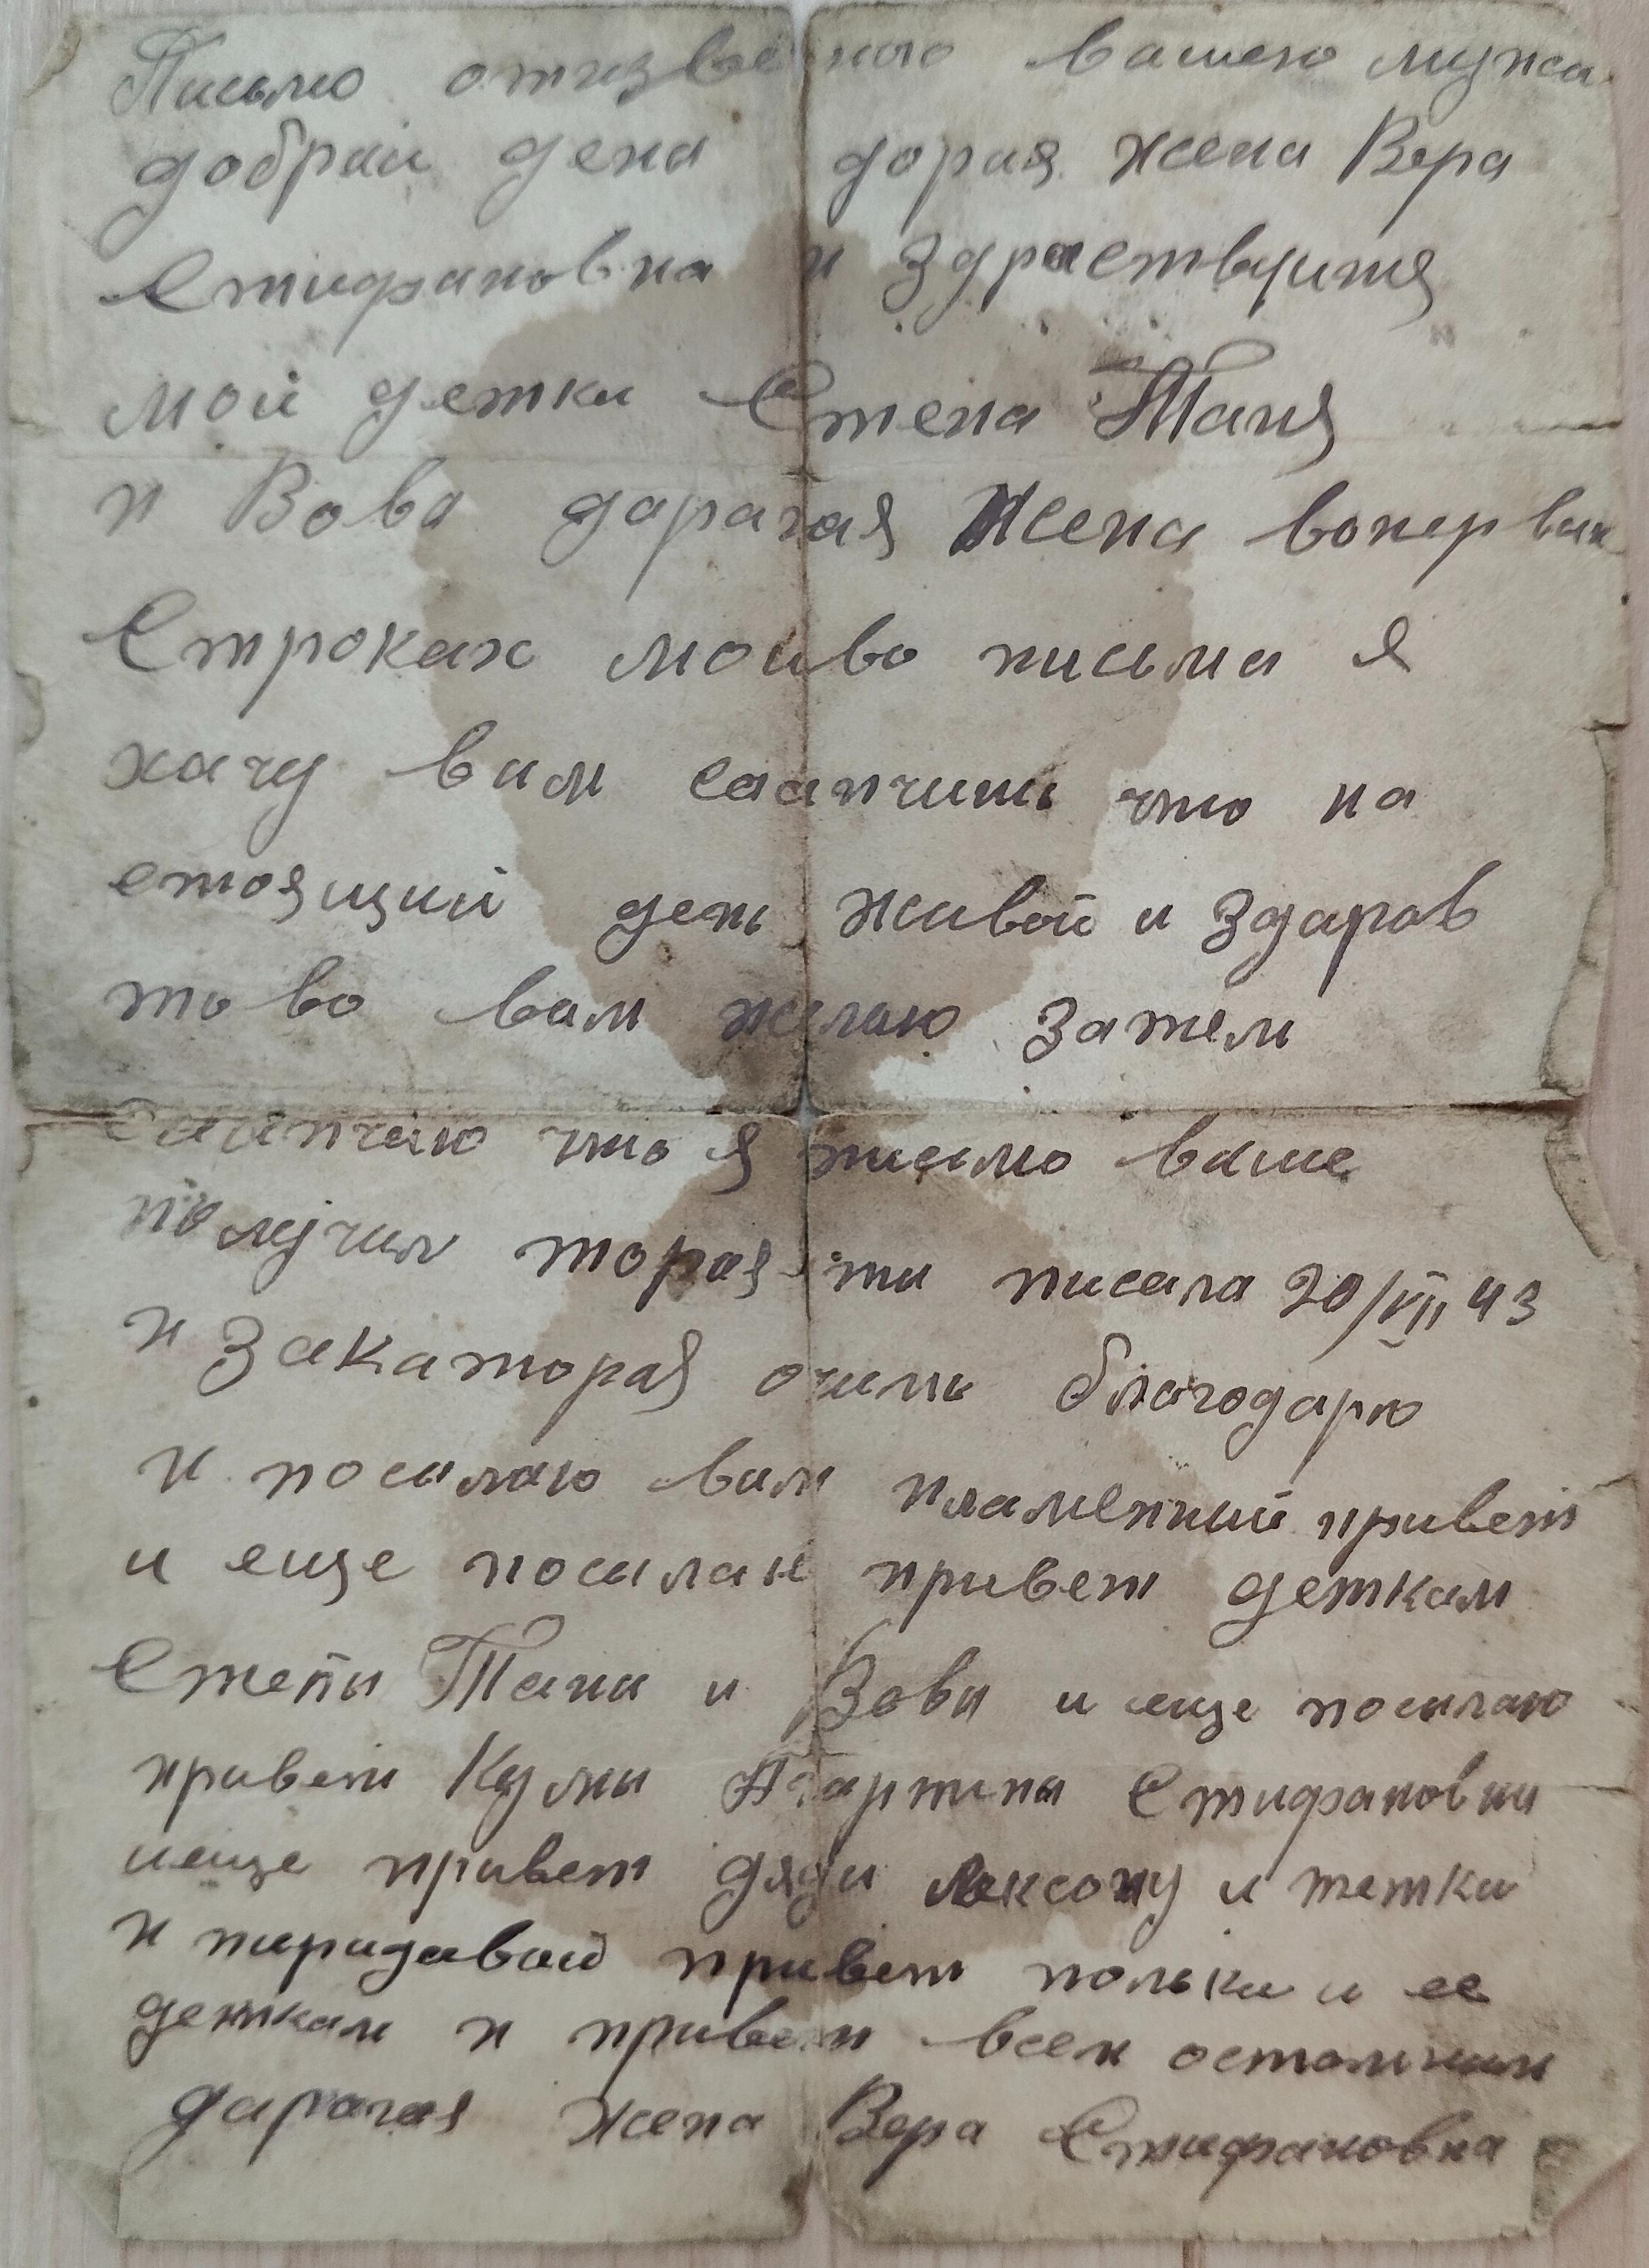 Письмо отизвесного вашего мужа
добрай дена дорая жена Вера
Стифановна и здраствуитя
мой детки Степа Таня
и Вова дарагая жена вопервых
строках моиво письма я
хачу вам саапчить что на
стоящий день живой и здаров
тово вам желаю затем
саапчаю что я письмо ваше
получил торая ти писала 20/VII 43
и закаторая очинь благодарю
и посылаю вам пламенный привет
и еще посылаю привет деткам
Степи Тани и Вови и еще посылаю
привет Кумы Стифановни
иеще привет дяди и тетки
и пиридавай привет польки и ее
деткам и привет всем остальным
дарагая жена Вера Стифановна